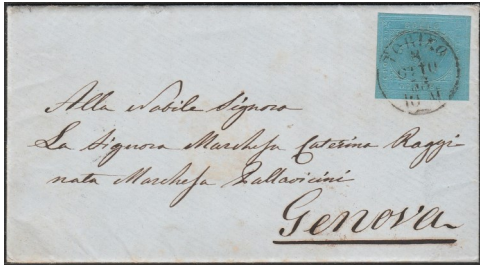 TORINO
2
GIUG
10 M
Alla Nobile Signora
La Signora Marchesa Caterina Raggi
nata Marchesa Pallavicini
Genova